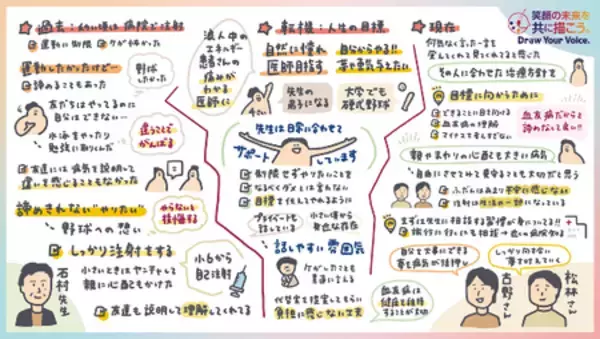 過去：幼い頃は病院で注射
運動に制限
ケガが怖かった
運動したかったけど…
諦めることもあった
野球したかった
友だちはやってるのに
自分はできない…
水泳をやったり
勉強に取りくんだ
違うことでがんばる
友達には病気を説明して
違いを感じることもなかった
諦めきれない"やりたい"
やらないと後悔する
野球への想い
しっかり注射をする
小6から
自己注射
石村先生
小さいときはヤンチャして
親に心配もかけた
友達も説明して理解してくれてる
転機：人生の目標
浪人中の
エネルギー
患者さんの
痛みが
わかる
医師に
自然に憧れ
医師目指す
自分からやる!!
夢や勇気与えたい
先生の
弟子になる
大学でも
硬式野球
先生は日常に合わせて
サポートしています
制限せずやりたいことを
なるべくダメとは言わない
目標を伝えてやれるように
プライベートも
話している
小さい頃から
身近な存在
話しやすい雰囲気
ケガしたことも
素直に言える
代替案を提案してもらい
負担に感じない工夫
現在
何気なく言った一言を
覚えてくれて見てくれてると感じた
その人に合わせた治療方針を
目標に向かうために
できることに目を向ける
血友病の理解
マイナスを考えすぎない
血友病だからと
諦めなくて良い!!
親やまわりの心配も大きい病気
自由にさせてみて見守ることも大切だと思う
ふだんはあまり不安に感じない
注射は生活の一部になっている
まずは先生に相談する習慣が身についている!!
旅行に行くにも相談
自分を大事にできる
しっかり向き合い
夢を叶えていく
古野さん
松林さん
笑顔の未来を
共に描こう。
Draw Your Voice.